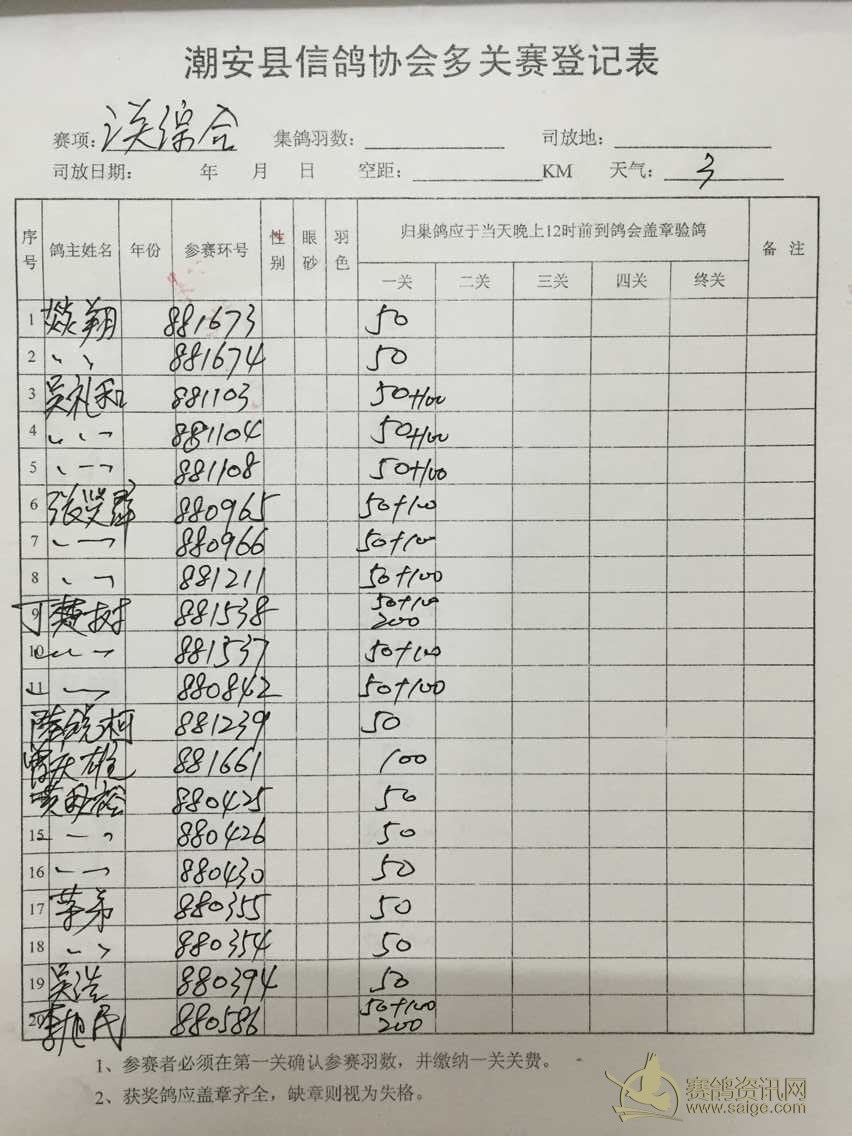 潮安县信鸽协会多关赛登记表
赛项: 三关综合 集鸽羽数: 司放地:
司放日期: 年 月 日 空距: KM 天气: 3
序号 鸽主姓名 年份 参赛环号 性别 眼砂 羽色 归巢鸽应于当天晚上12时前到鸽会盖章验鸽 备 注
一关 二关 三关 四关 终关
1 翔 881673 50
2 〃 881674 50
3 吴礼和 881103 50+100
4 〃 881104 50+100
5 〃 881108 50+100
6 张 群 880965 50+100
7 〃 880966 50+100
8 〃 881211 50+100
9 丁楚树 881538 50+100
200
10 〃 881537 50+100
11 〃 880842 50+100
陈 柯 881239 50
曾庆雄 881661 100
黄 880425 50
15 〃 880426 50
16 〃 880430 50
17 弟 880355 50
18 〃 880354 50
19 吴浩 880394 50
20 李旭民 880586 50+100
200
1、参赛者必须在第一关确认参赛羽数，并缴纳一关关费。
2、获奖鸽应盖章齐全，缺章则视为失格。
赛鸽资讯网
www.saige.com